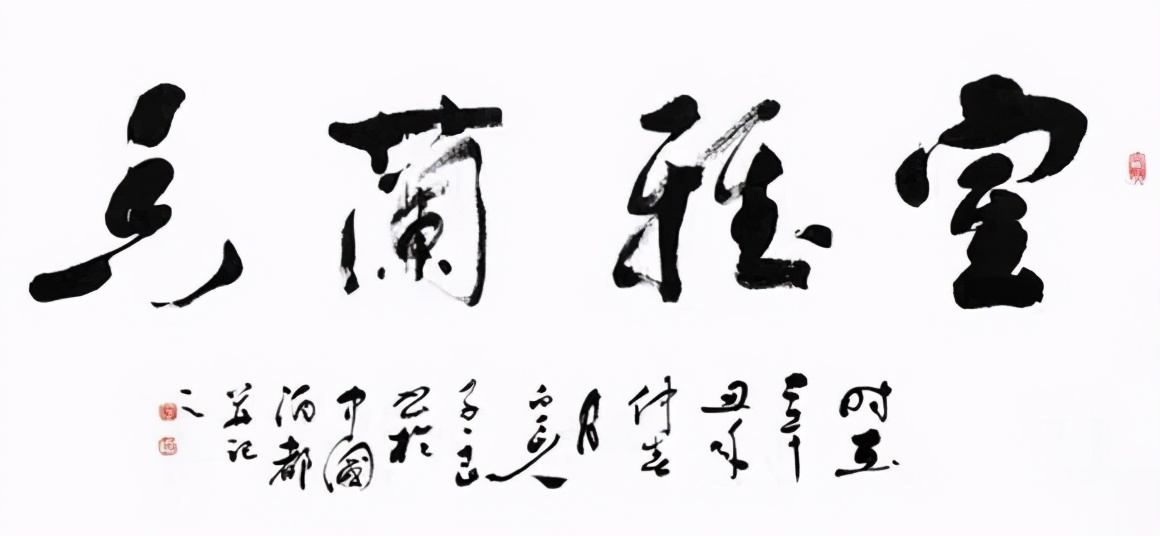 室雅蘭香
时在辛丑年仲春月
书於中國酒都
并记之